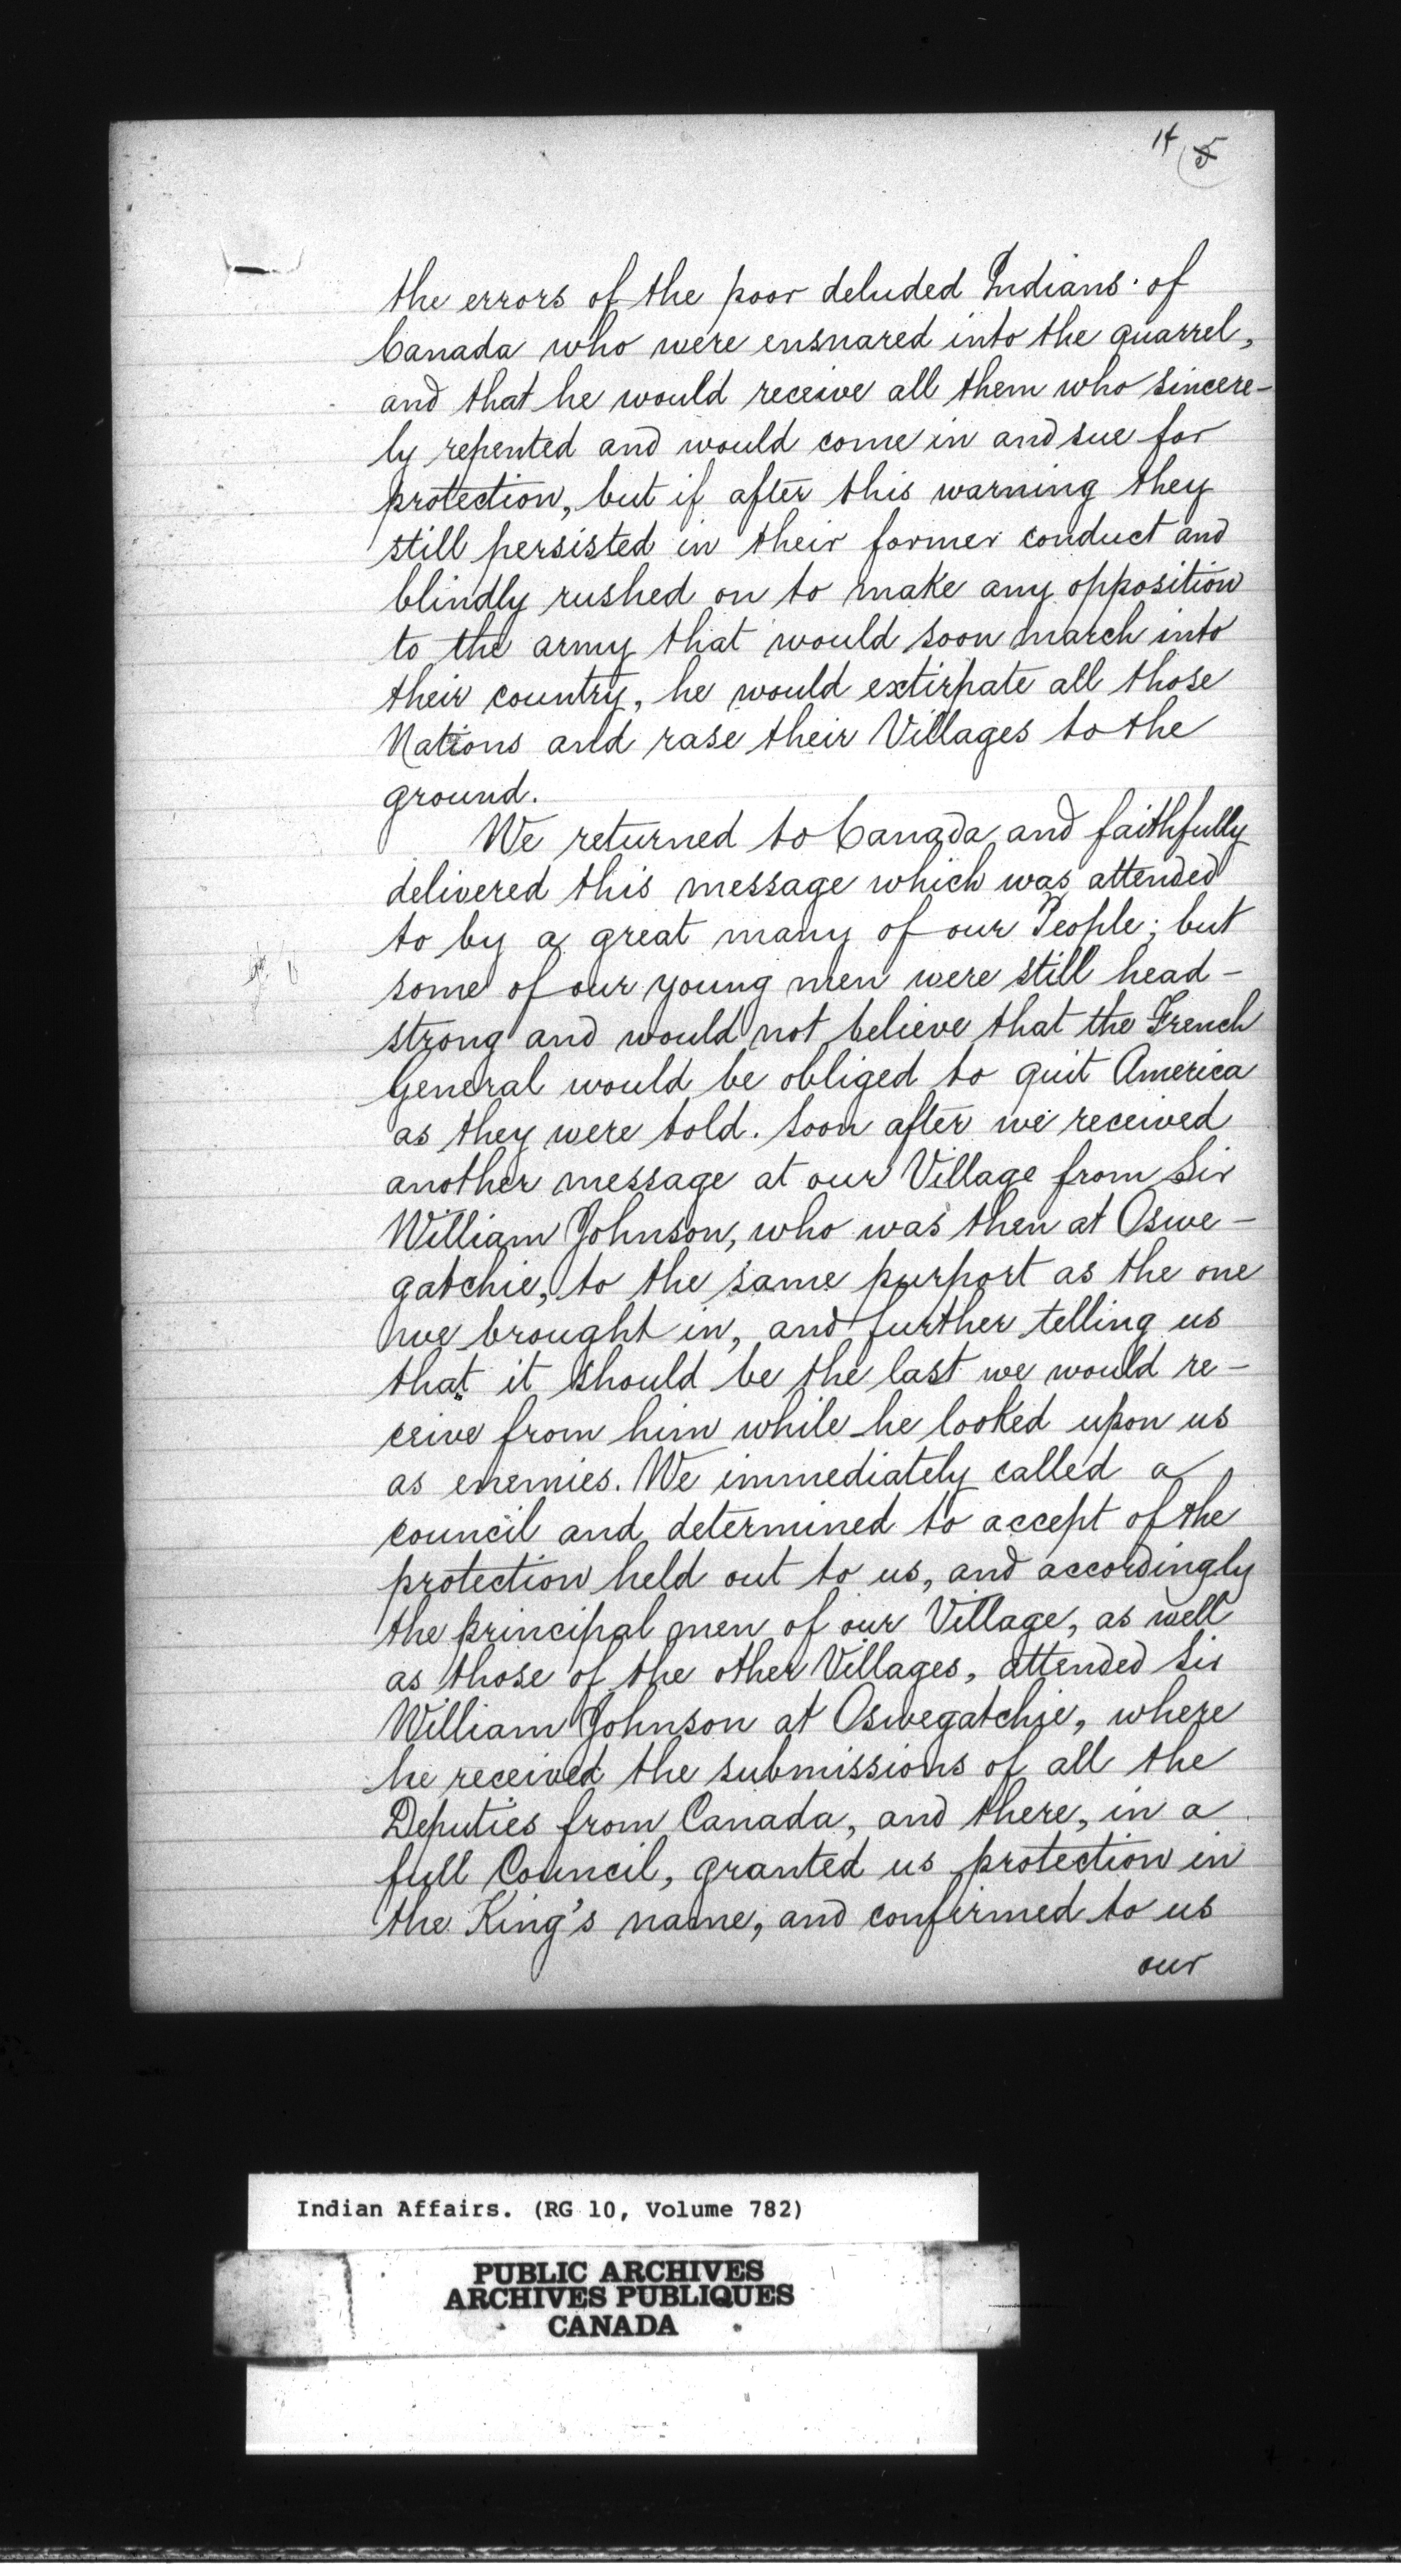 14 5
the errors of the poor deluded Indians of
Canada who were ensnared into the quarrel,
and that he would receive all them who sincere-
ly repented and would come in and sue for
protection, but if after this warning they
still persisted in their former conduct and
blindly rushed on to make any opposition
to the army that would soon march into
their country, he would extirpate all those
Nations and rase their Villages to the
ground.
We returned to Canada and faithfully
delivered this message which was attended
to by a great many of our People; but
some of our young men were still head-
strong and would not believe that the French
General would be obliged to quit America
as they were told. Soon after we received
another message at our Village from Sir
William Johnson, who was then at Oswe-
gatchie, to the same purport as the one
we brought in, and further telling us
that it should be the last we would re-
ceive from him while he looked upon us
as enemies. We immediately called a
council and determined to accept of the
protection held out to us, and accordingly
the principal men of our Village, as well
as those of the other Villages, attended Sir
William Johnson at Oswegatchie, where
he received the submissions of all the
Deputies from Canada, and there, in a
full Council, granted us protection in
the King's name, and confirmed to us
our
Indian Affairs. (RG 10, Volume 782)
PUBLIC ARCHIVES
ARCHIVES PUBLIQUES
CANADA